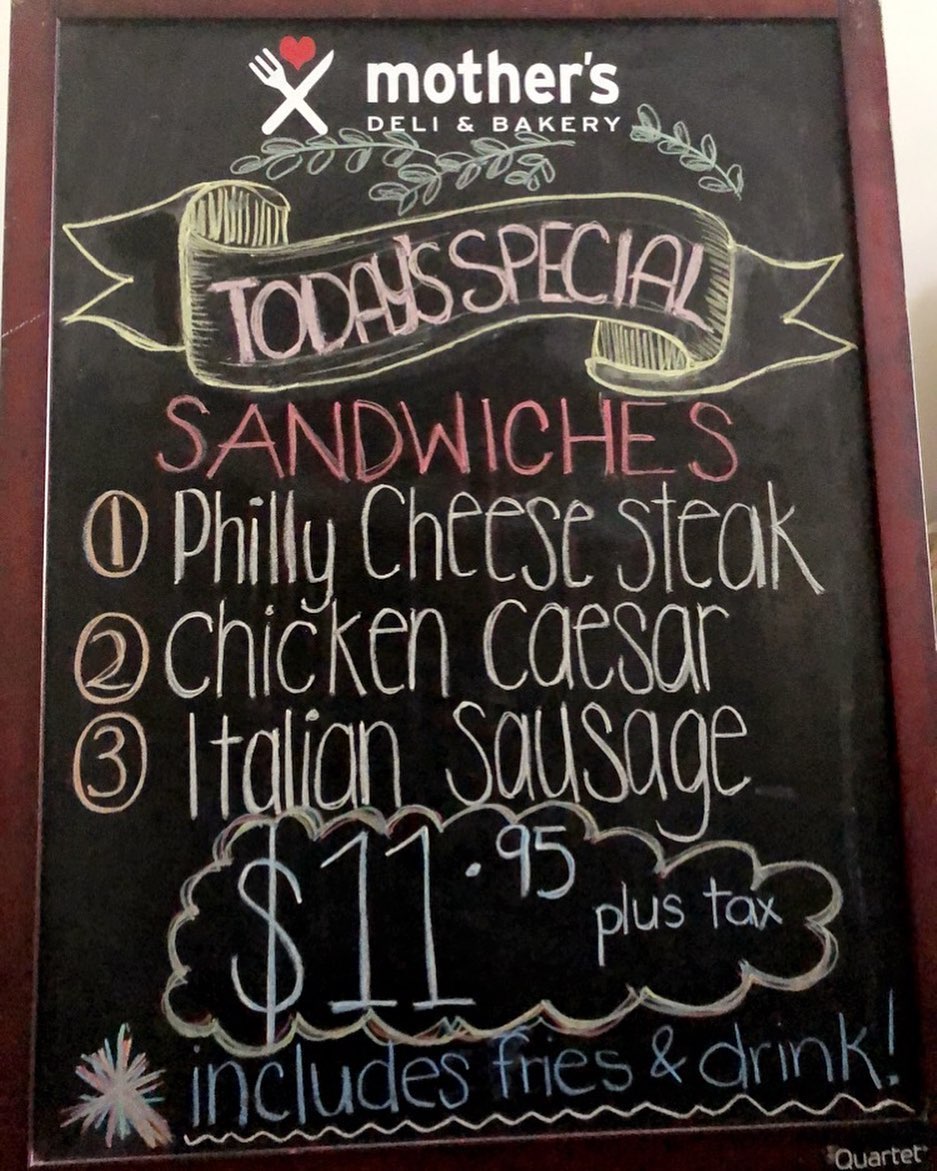 mother's
DELI & BAKERY
TODAY'S SPECIAL
SANDWICHES
1 Philly Cheese steak
2 Chicken Caesar
3 Italian Sausage
$11.95 plus tax
* includes fries & drink!
Quartet